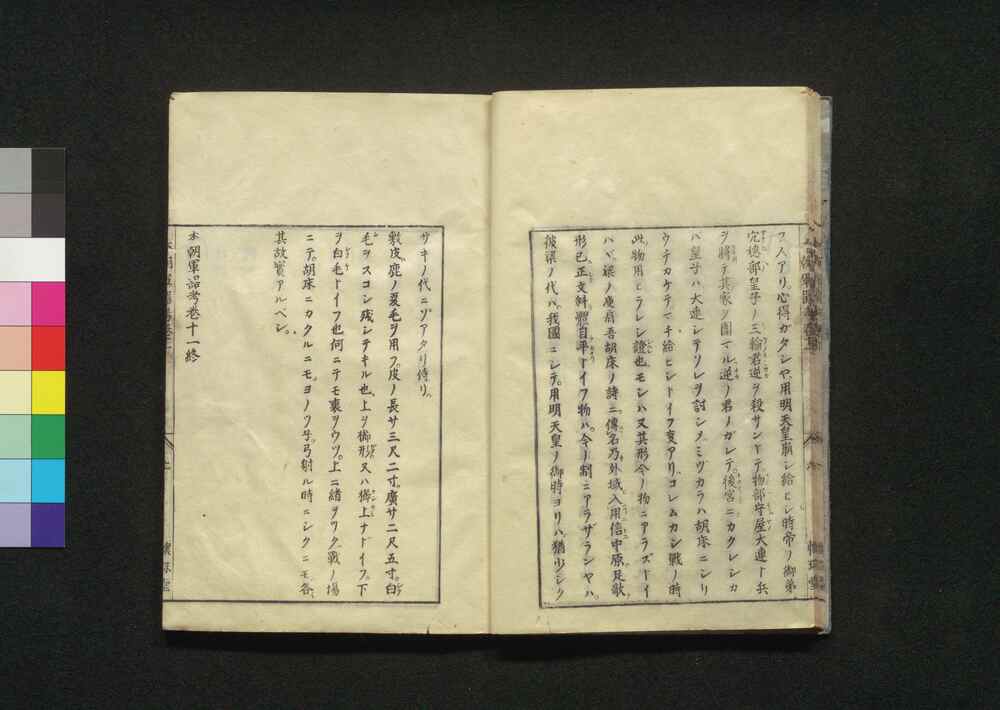 フ人アリ心得ガタシヤ用明天皇崩シ給ヒシ時帝ノ御弟
穴穂部皇子ノ三輪君逆ヲ殺サントテ物部守屋大連ト兵
ヲ將テ其家ヲ圍マル逆ノ君ノガレテ後宮ニカクレシカ
バ皇子ハ大連シテソレヲ討シメミヅカラハ胡床ニシリ
ウチカケテマチ給ヒシトイフ事アリコレムカシ戰ノ時
此物用ヒラレシ證也モシハ又其形今ノ物ニアラズトイ
ハバ梁ノ庾肩吾胡床ノ詩ニ傳名乃外域入用信中原足欹
形已正文斜體自平トイフ物ハ今ノ制ニアラザランヤハ
彼梁ノ代ハ我國ニシテ用明天皇ノ御時ヨリハ猶少シク
サキノ代ニゾアタリ侍リ
敷皮鹿ノ夏毛ヲ用フ皮ノ長サ三尺二寸廣サ二尺五寸白
毛ヲスコシ残シテキル也上ヲ櫛形又ハ櫛上ナドイフ下
ヲ白毛トイフ也何ニテモ裏ヲウツ上ニ緒ヲツク戰ノ場
ニテ胡床ニカクルニモヨノツ子弓射ル時ニシクニモ各
其故實アルベシ
本朝軍器考巻十一終